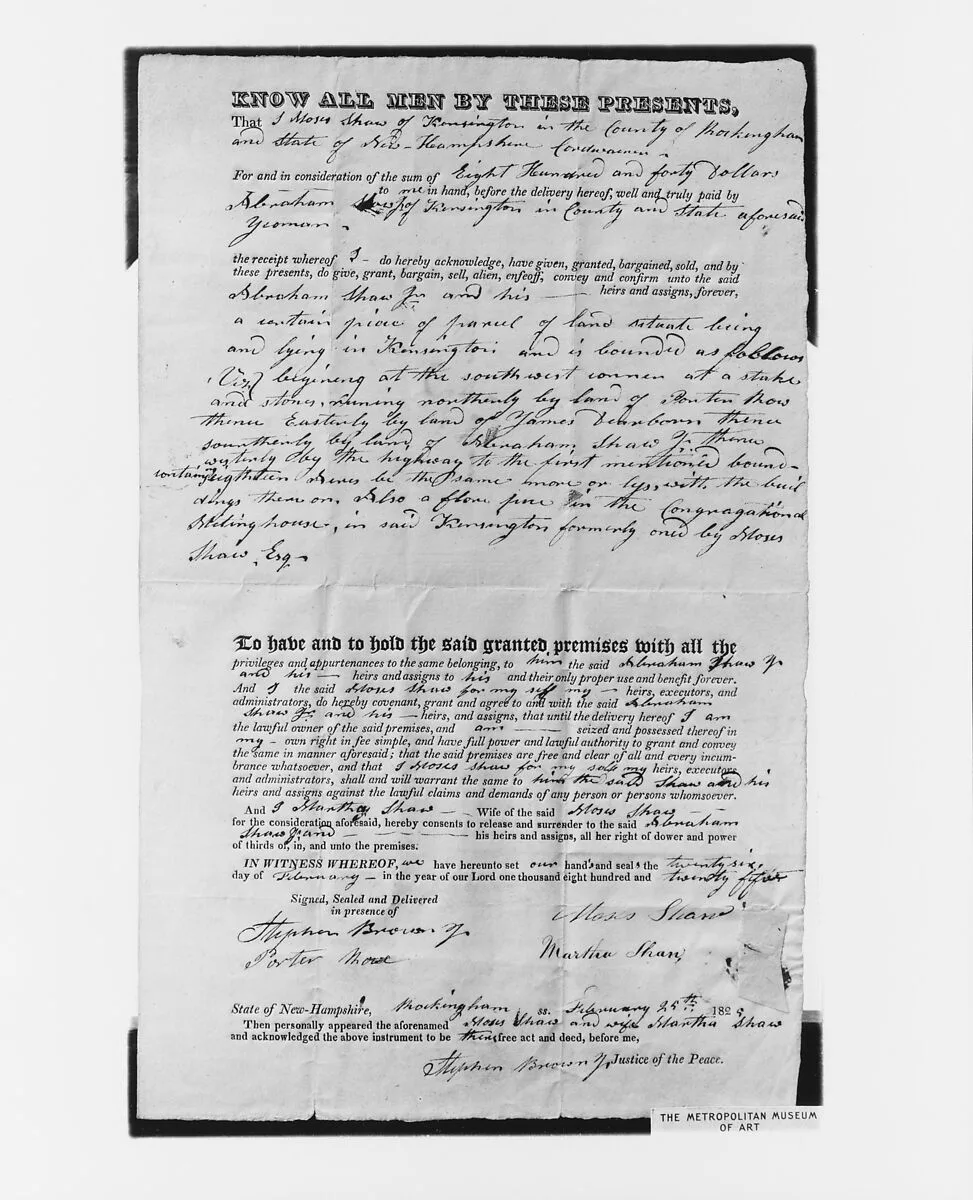 KNOW ALL MEN BY THESE PRESENTS,
That I Moses Shaw of Kensington in the County of Rockingham
and State of New-Hampshire Cordwainer
For and in consideration of the sum of Eight Hundred and forty Dollars
to me in hand, before the delivery hereof, well and truly paid by
Abraham Shaw Jr of Kensington in County and State aforesaid
Yeoman
the receipt whereof I do hereby acknowledge, have given, granted, bargained, sold, and by
these presents, do give, grant, bargain, sell, alien, enfeoff, convey and confirm unto the said
Abraham Shaw Jr and his heirs and assigns, forever,
a certain piece of parcel of land situate being
and lying in Kensington and is bounded as follows
(Viz) begining at the southwest corner at a stake
and stones, runing northerly by land of Porter Row
thence Easterly by land of James Dearborn thence
sourtherly by land of Abraham Shaw Jr thence
westerly by the highway to the first mentioned bound-
containing Eighteen Acres be the same more or less with the buil
dings there on Also a flore pue in the Congragational
Meting house, in said Kensington formerly oned by Moses
Shaw Esq
To have and to hold the said granted premises with all the
privileges and appurtenances to the same belonging, to him the said Abraham Shaw Jr
and his heirs and assigns to his and their only proper use and benefit forever.
And I the said Moses Shaw for my self my heirs, executors, and
administrators, do hereby covenant, grant and agree to and with the said Abraham
Shaw Jr and his heirs, and assigns, that until the delivery hereof I am
the lawful owner of the said premises, and am seized and possessed thereof in
my own right in fee simple, and have full power and lawful authority to grant and convey
the same in manner aforesaid; that the said premises are free and clear of all and every incum-
brance whatsoever, and that I Moses Shaw for my self my heirs, executors
and administrators, shall and will warrant the same to him the said Shaw and his
heirs and assigns against the lawful claims and demands of any person or persons whomsoever.
And I Martha Shaw Wife of the said Moses Shaw
for the consideration aforesaid, hereby consents to release and surrender to the said Abraham
Shaw Jr and his heirs and assigns, all her right of dower and power
of thirds of, in, and unto the premises.
IN WITNESS WHEREOF, we have hereunto set our hands and seals the twenty six
day of February in the year of our Lord one thousand eight hundred and twenty
Signed, Sealed and Delivered
in presence of
Moses Shaw
Stephen Brown Jr
Martha Shaw
Porter Rowe
State of New-Hampshire, Rockingham ss. February 182
Then personally appeared the aforenamed Moses Shaw and wife Martha Shaw
and acknowledged the above instrument to be their free act and deed, before me,
Stephen Brown Jr Justice of the Peace.
THE METROPOLITAN MUSEUM
OF ART